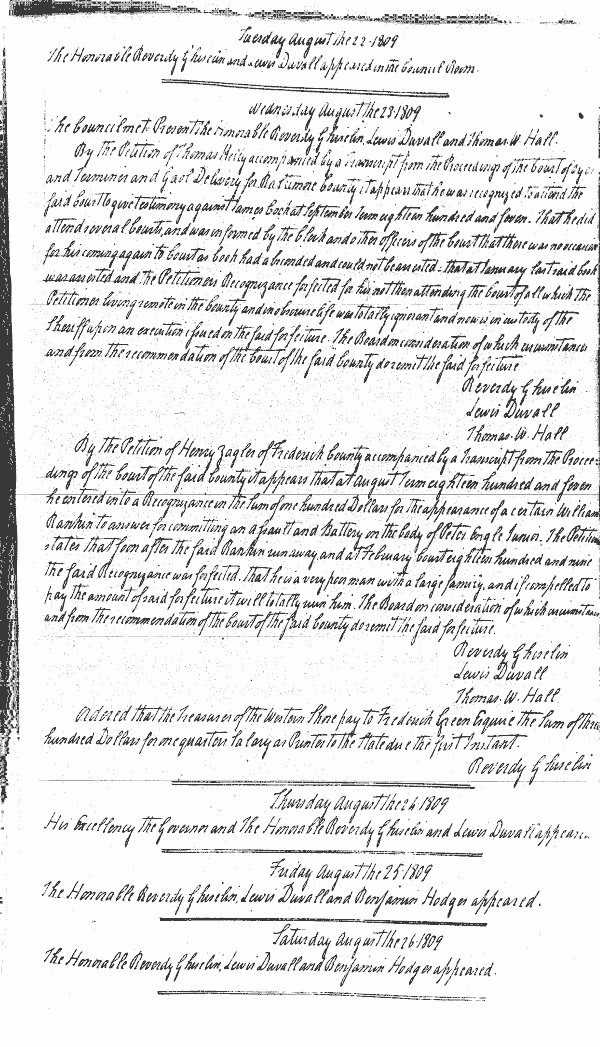 Tuesday August the 22. 1809
The Honorable Reverdy Ghiselin and Lewis Duvall appeared in the Council Room.
Wednesday August the 23. 1809
The Council met. Present the Honorable Reverdy Ghiselin, Lewis Duvall and Thomas. W. Hall.
By the Petition of Thomas accompanied by a Transcript from the Proceedings of the Court of Oyer
and Terminer and Gaol Delivery for Baltimore County it appears that he was recognized to attend the
said Court to give testimony against James Cock at September Term eighteen hundred and seven. That he did
attend several Courts, and was informed by the Clerk and other officers of the Court that there was no occasion
for his coming again to Court as Cock had absconded and could not be arrested. that at January last said Cock
was arrested and the Petitioners Recognizance forfeited for his not then attending the Court of all which the
Petitioner living remote in the County and in obscure life was totally ignorant and now is in custody of the
Sheriff upon an execution issued on the said forfeiture. The Board in consideration of which circumstances
and from the recommendation of the Court of the said County do remit the said forfeiture
Reverdy Ghiselin
Lewis Duvall
Thomas. W. Hall
By the Petition of Henry Zagler of Frederick County accompanied by a Transcript from the Procee-
dings of the Court of the said County it appears that at August Term eighteen hundred and seven
he entered into a Recognizance in the sum of one hundred Dollars for the appearance of a certain William
Rankin to answer for committing an assault and Battery on the body of Peter Engle Junior. The Petition
states that soon after the said Rankin runaway, and at February Court eighteen hundred and nine
the said Recognizance was forfeited. that he is a very poor man with a large family, and if compelled to
pay the amount of said forfeiture it will totally ruin him. The Board on consideration of which circumstances
and from the recommendation of the Court of the said County do remit the said forfeiture.
Reverdy Ghiselin
Lewis Duvall
Thomas. W. Hall
Ordered that the Treasurer of the Western Shore pay to Frederick Green Esquire the sum of three
hundred Dollars for one quarters salary as Printer to the State due the first Instant.
Reverdy Ghiselin
Thursday August the 24. 1809
His Excellency the Governor and The Honorable Reverdy Ghiselin and Lewis Duvall appeared.
Friday August the 25. 1809
The Honorable Reverdy Ghiselin, Lewis Duvall and Benjamin Hodges appeared.
Saturday August the 26. 1809
The Honorable Reverdy Ghiselin, Lewis Duvall and Benjamin Hodges appeared.